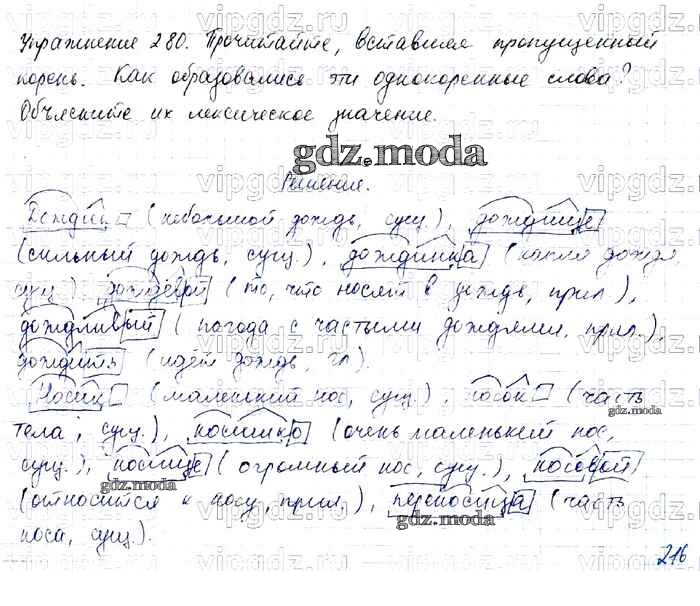 Упражнение 280. Прочитайте, вставляя пропущенный
корень. Как образовались эти однокоренные слова?
Объясните их лексическое значение.
gdz.moda
Решение.
Дождик (небольшой дождь, сущ.), дождище
(сильный дождь, сущ.), дождинка (капля дождя,
сущ.), дождевой (то, что носят в дождь, прил.),
дождливый (погода с частыми дождями, прил.),
дождить (идёт дождь, гл.).
Носик (маленький нос, сущ.), носок (часть
gdz.moda
тела, сущ.), носишко (очень маленький нос,
сущ.), носище (огромный нос, сущ.), носовой
gdz.moda
(относится к носу, прил.), переносица (часть
gdz.moda
носа, сущ.).
216
vipgdz.ru